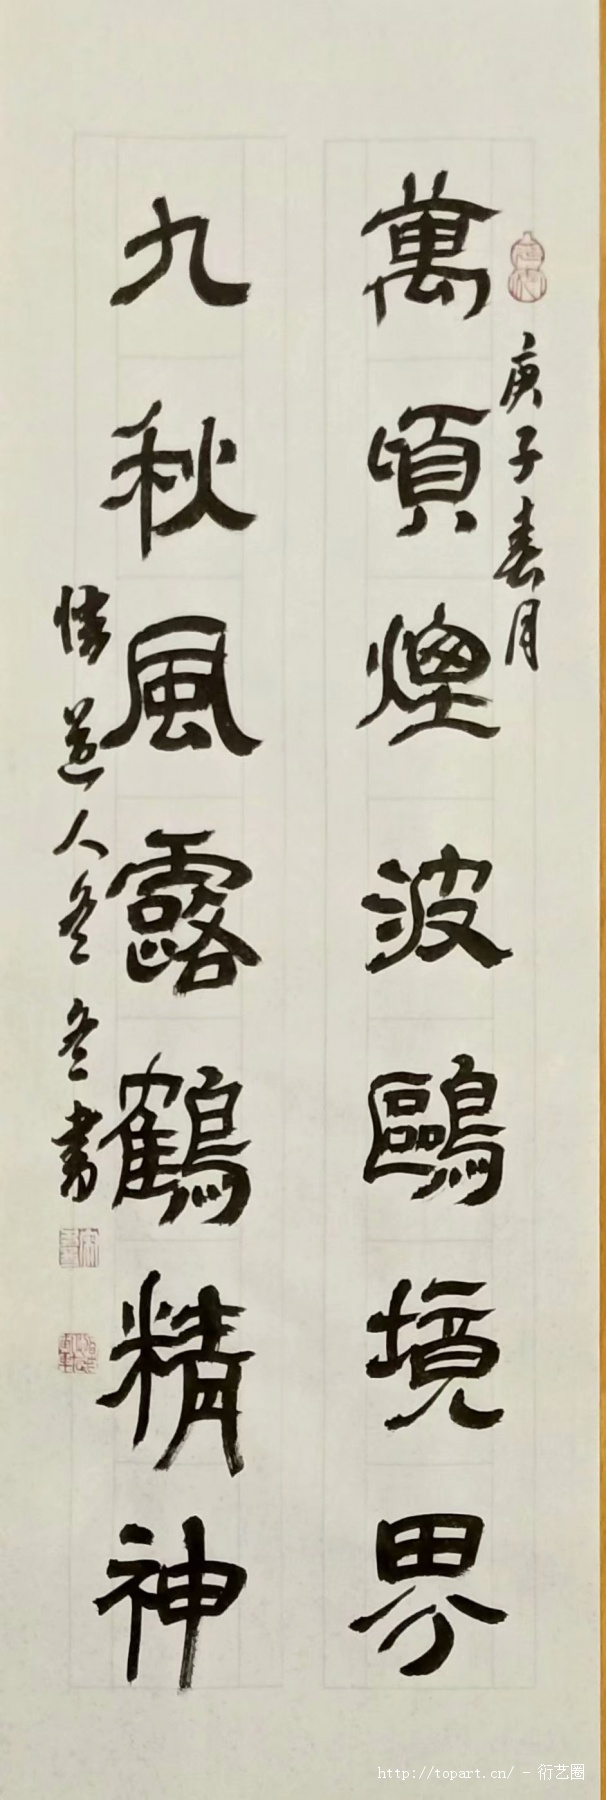 庚子春月
萬頃煙波鷗境界
九秋風露鶴精神
道人冬冬書
http://topart.cn/ - 衍艺圈